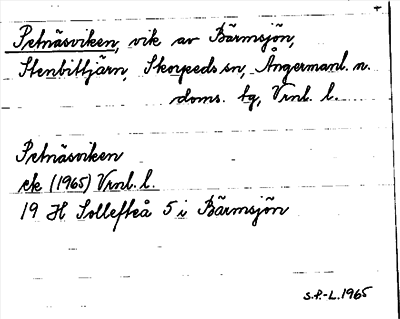 Petnäsviken, vik av Bärmsjön,
Stenbittjärn, Skorpeds sn, Ångermanl. n.
doms. tg, Vrnl. l.
Petnäsviken
ek (1965) Vrnl. l.
19 H Sollefteå 5 i Bärmsjön
S.P.-L. 1965